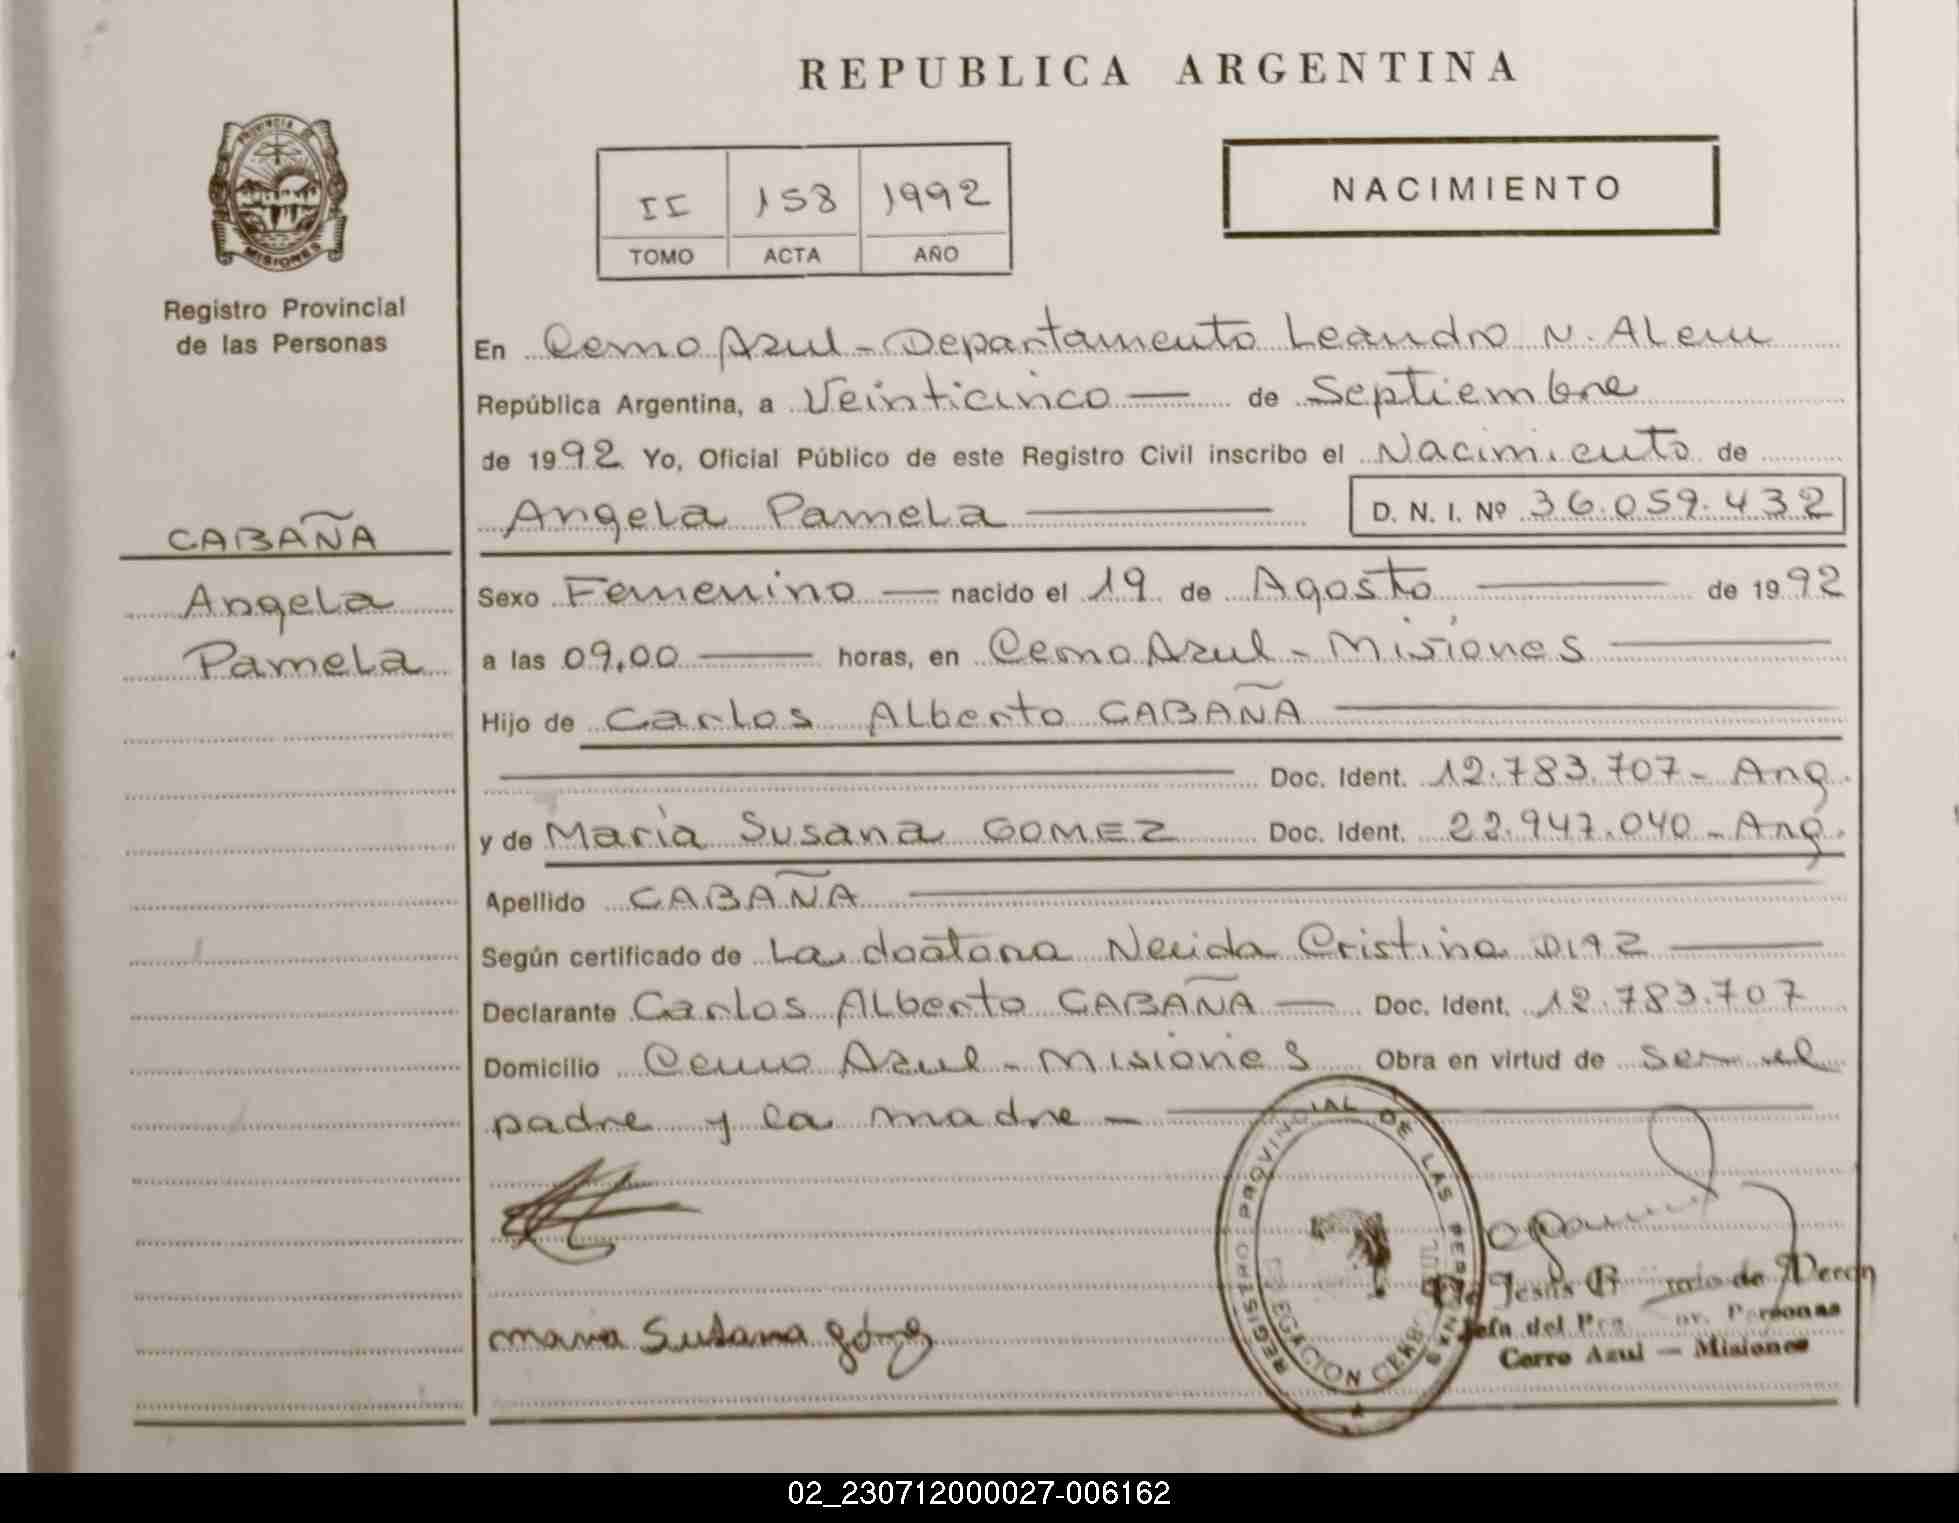 REPUBLICA ARGENTINA
PROVINCIA DE
MISIONES
Registro Provincial
de las Personas
II 158 1992
TOMO ACTA AÑO
NACIMIENTO
En Cerro Azul - Departamento Leandro N. Alem
República Argentina, a Veinticinco — de Septiembre
de 1992 Yo, Oficial Público de este Registro Civil inscribo el Nacimiento de
Angela Pamela — D. N. I. Nº 36.059.432
CABAÑA
Angela
Pamela
Sexo Femenino — nacido el 19 de Agosto — de 1992
a las 09,00 — horas, en Cerro Azul - Misiones —
Hijo de Carlos Alberto CABAÑA —
— Doc. Ident. 12.783.707 - Arg.
y de María Susana GOMEZ Doc. Ident. 22.947.040 - Arg.
Apellido CABAÑA —
Según certificado de La doctora Cristina DIAZ —
Declarante Carlos Alberto CABAÑA — Doc. Ident. 12.783.707
Domicilio Cerro Azul - Misiones Obra en virtud de ser el
padre y la madre —
REGISTRO PROVINCIAL DE LAS PERSONAS
DELEGACION CERRO AZUL
Jesús de Veron
Jefa del Personas
Cerro Azul — Misiones
Maria Susana Gómez
02_230712000027-006162